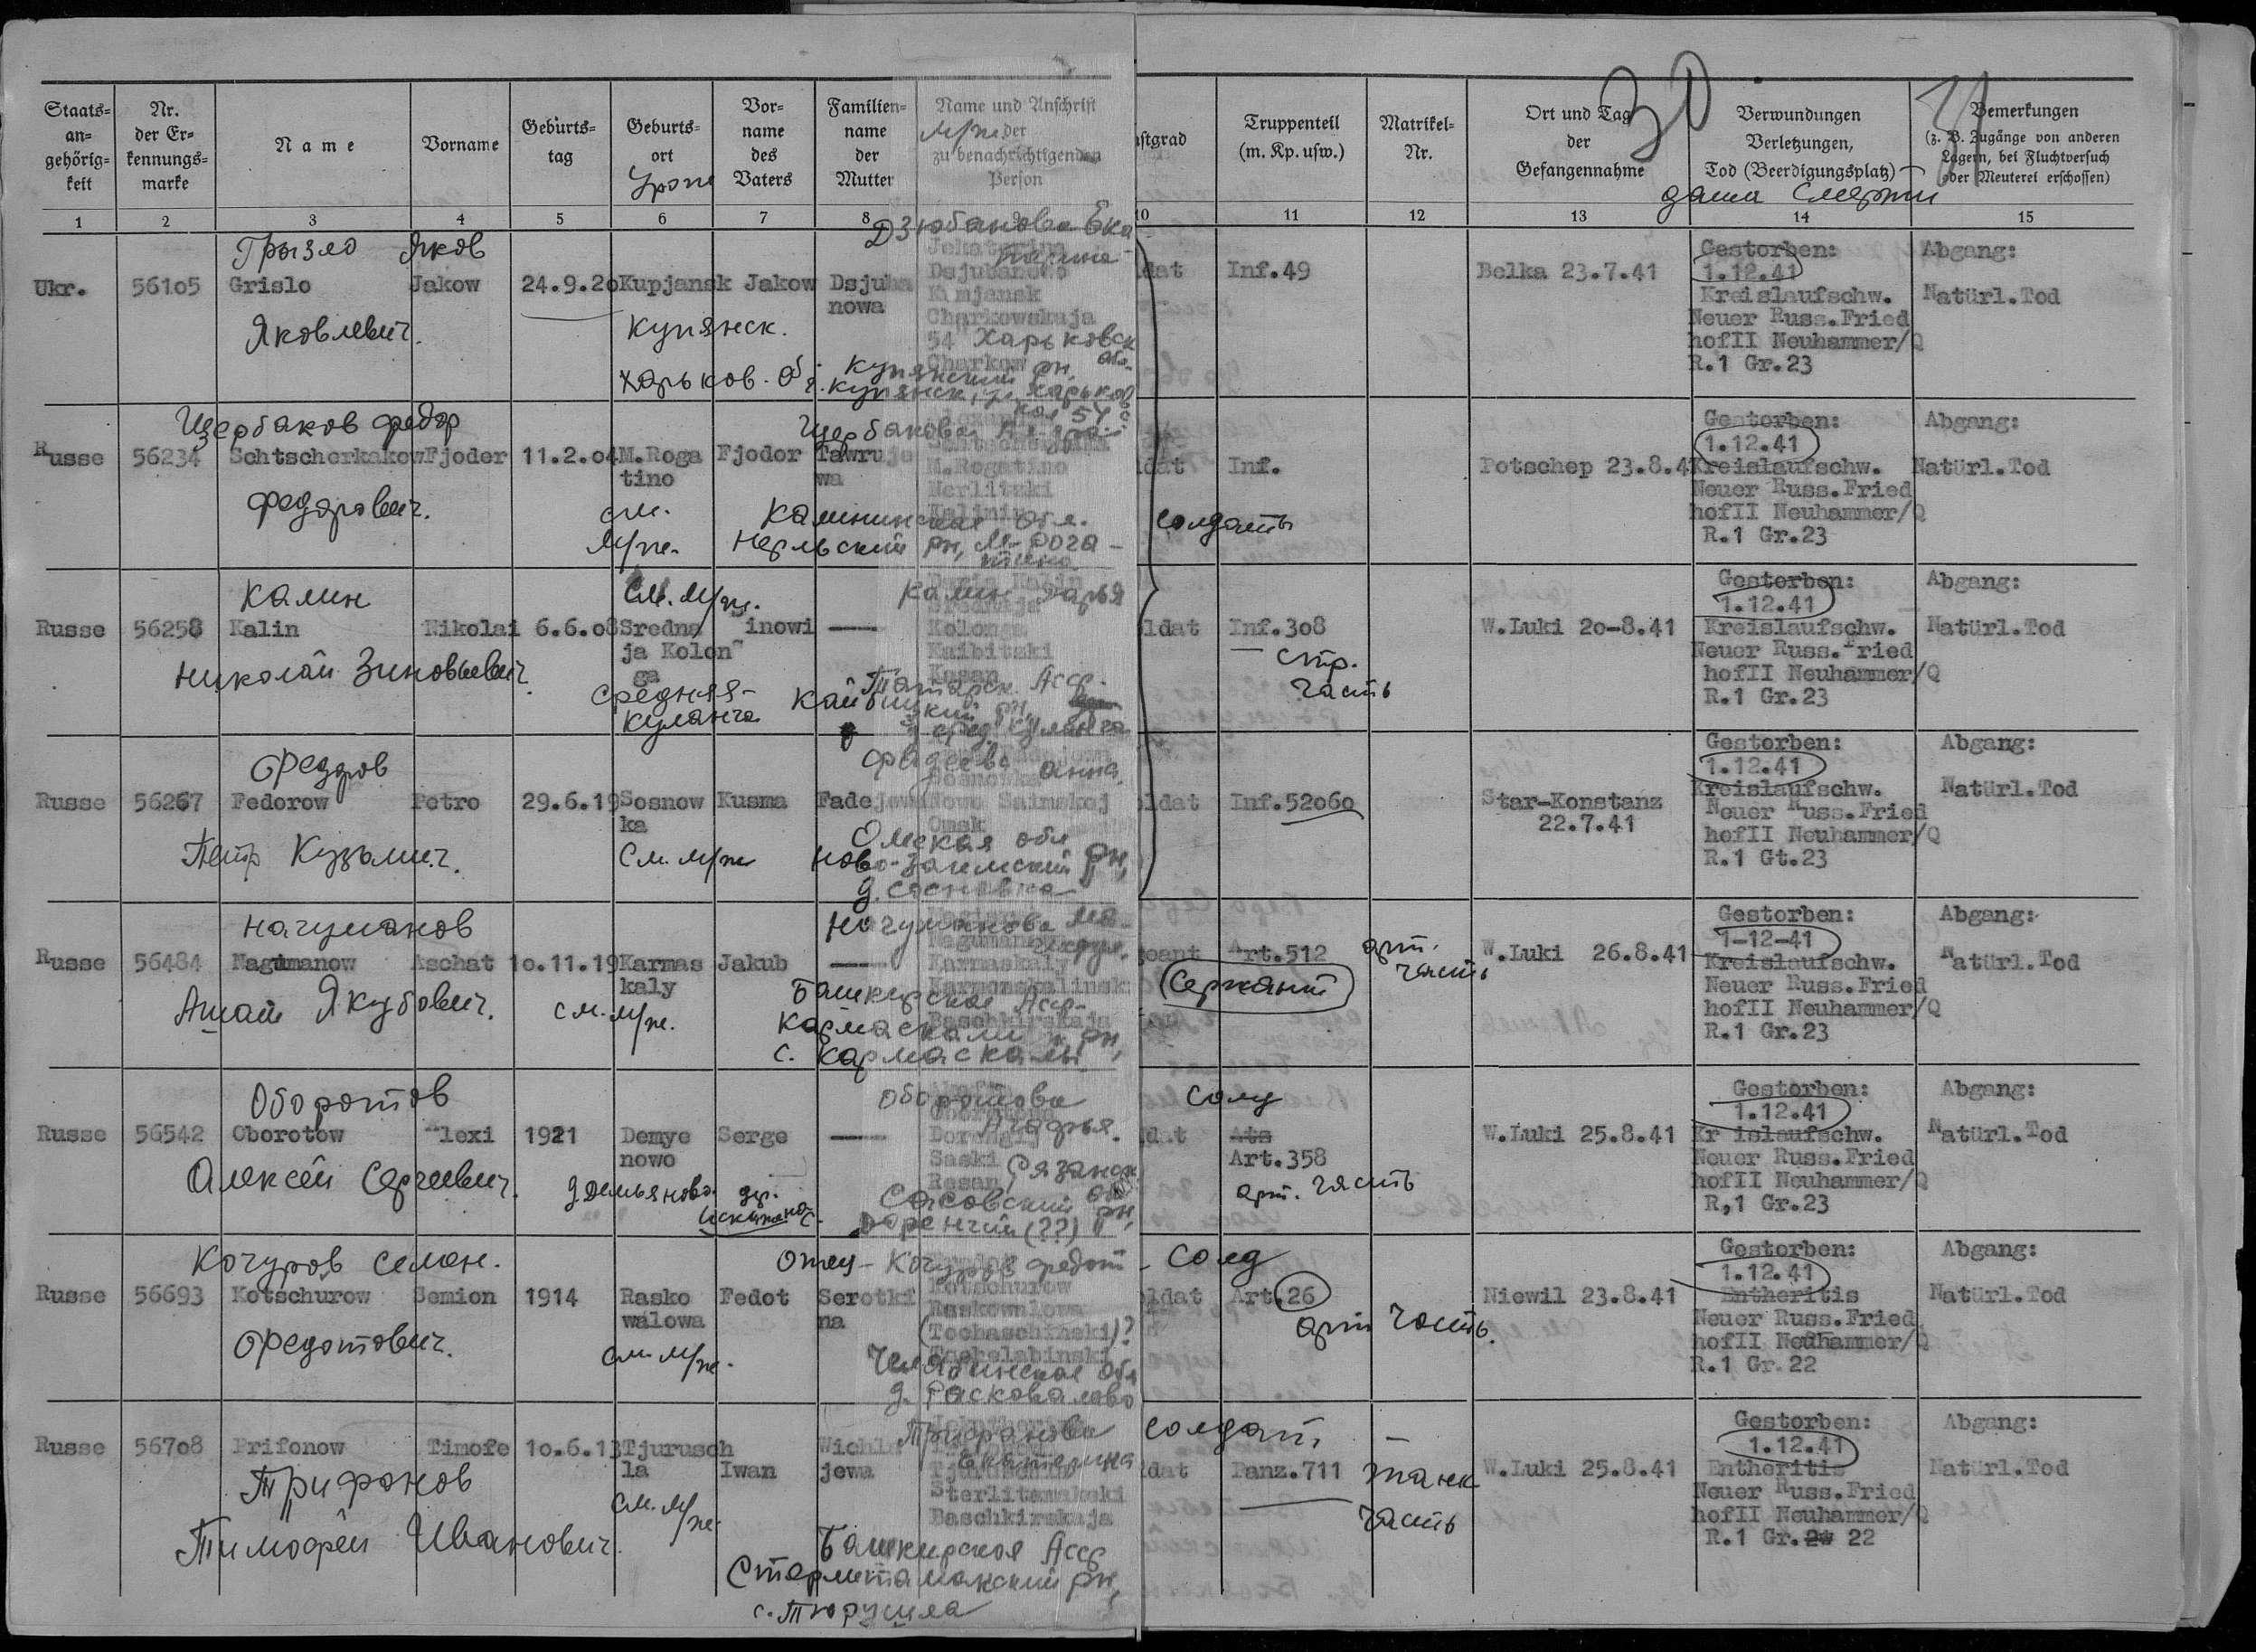 30
Staats-
an-
gehörig-
keit
Nr.
der Er-
kennungs-
marke
Name
Vorname
Geburts-
tag
Geburts-
ort
Vor-
name
des
Vaters
Familien-
name
der
Mutter
Name und Anschrift
der
zu benachrichtigenden
Person
м/ж
stgrad
Truppenteil
(m. Kp. usw.)
Matrikel-
Nr.
Ort und Tag
der
Gefangennahme
Verwundungen
Verletzungen,
Tod (Beerdigungsplatz)
дата смерти
Bemerkungen
(z. B. Zugänge von anderen
Lagern, bei Fluchtversuch
oder Meuterei erschossen)
1 2 3 4 5 6 7 8 10 11 12 13 14 15
Грызло Яков
Дзюбанова Ека
Ukr. 56105 Grislo Jakow 24.9.20 Kupjansk Jakow Dsjuba
nowa
Jekaterina
Dsjubanowo
Charkowskaja
54 Харьковск
Charkow
обл.
Яковлевич.
Купянск.
Харьков. обл.
Купянский рн.
г. Купянск, ул. Харьков
ская 54
dat Inf.49 Belka 23.7.41
Gestorben:
1.12.41
Kreislaufschw.
Neuer Russ.Fried
hofII Neuhammer/Q
R.1 Gr.23
Abgang:
Natürl.Tod
Щербаков Федор
Щербакова
Russe 56234 Schtscherkakow Fjodor 11.2.04 M.Roga
tino
Fjodor Tawruje
wa
M.Rogatino
Nerlitzki
Kalinin
Федорович.
см.
м/ж.
Калининская обл.
Нерльский рн, М-Рога-
тино
dat Inf. Potschep 23.8.4
солдаты
Gestorben:
1.12.41
Kreislaufschw.
Neuer Russ.Fried
hofII Neuhammer/Q
R.1 Gr.23
Abgang:
Natürl.Tod
Калин
См. м/ж.
Калин Дарья
Russe 56258 Kalin Nikolai 6.6.08 Sredna
ja Kolon
ga
inowi —
Daria Kalin
Srednaja
Kolonga
Kaibitzki
Kasan
Николай Зиновьевич.
Средняя-
Куланга
Татарск. Асср.
Кайбицкий рн,
сред. Куланга
ldat Inf.308 W.Luki 20-8.41
стр.
часть
Gestorben:
1.12.41
Kreislaufschw.
Neuer Russ.Fried
hofII Neuhammer/Q
R.1 Gr.23
Abgang:
Natürl.Tod
Федоров
Фадеева Анна.
Russe 56267 Fedorow Petro 29.6.19 Sosnow
ka
Kusma Fadejewa
Sosnowka
Nowo Saimskoj
Omsk
Петр Кузьмич.
См. м/ж
Омская обл
Ново-Заимский рн,
д. Сосновка
ldat Inf.52060 Star-Konstanz
22.7.41
Gestorben:
1.12.41
Kreislaufschw.
Neuer Russ.Fried
hofII Neuhammer/Q
R.1 Gt.23
Abgang:
Natürl.Tod
Нагуманов
Нагуманова
Russe 56484 Nagumanow Aschat 10.11.19 Karmas
kaly
Jakub —
Karmaskaly
Baschkirskaja
Ашат Якубович.
см. м/ж.
Башкирская Асср-
Кармаскали рн,
с. Кармаскалы
geant Art.512 W.Luki 26.8.41
Сержант
арт.
часть
Gestorben:
1-12-41
Kreislaufschw.
Neuer Russ.Fried
hofII Neuhammer/Q
R.1 Gr.23
Abgang:
Natürl.Tod
Оборотов
Оборотова
Агафья.
Russe 56542 Oborotow Alexi 1921 Demye
nowo
Serge —
Saski
Resan
Алексей Сергеевич.
д Демьяново.
Рязанск
Сасовский рн,
Доренчий (??)
солд
dat Ats
Art.358 W.Luki 25.8.41
арт. часть
Gestorben:
1.12.41
Kr islaufschw.
Neuer Russ.Fried
hofII Neuhammer/Q
R,1 Gr.23
Abgang:
Natürl.Tod
Кочуров Семен.
Отец - Кочуров Федот
Russe 56693 Kotschurow Semion 1914 Rasko
walowa
Fedot Serotki
na
Kotschurow
Raskowalowa
(Tochaschinski)?
Tschelabinski
Федотович.
см. м/ж.
Челябинская обл
д. Расковалово
солд
ldat Art.26 Niewil 23.8.41
арт часть.
Gestorben:
1.12.41
Entheritis
Neuer Russ.Fried
hofII Neuhammer/Q
R.1 Gr.22
Abgang:
Natürl.Tod
Трифонова
Екатерина
Russe 56708 Frifonow Timofe 10.6.13 Tjurusch
la
Iwan Wichla
jewa
Sterlitamakski
Baschkirskaja
Трифонов
Тимофей Иванович.
см. м/ж.
Башкирская Асср
Стерлитамакский рн,
с. Тюрушла
солдат —
dat Panz.711 W.Luki 25.8.41
танк
часть
Gestorben:
1.12.41
Entheritis
Neuer Russ.Fried
hofII Neuhammer/Q
R.1 Gr.24 22
Abgang:
Natürl.Tod